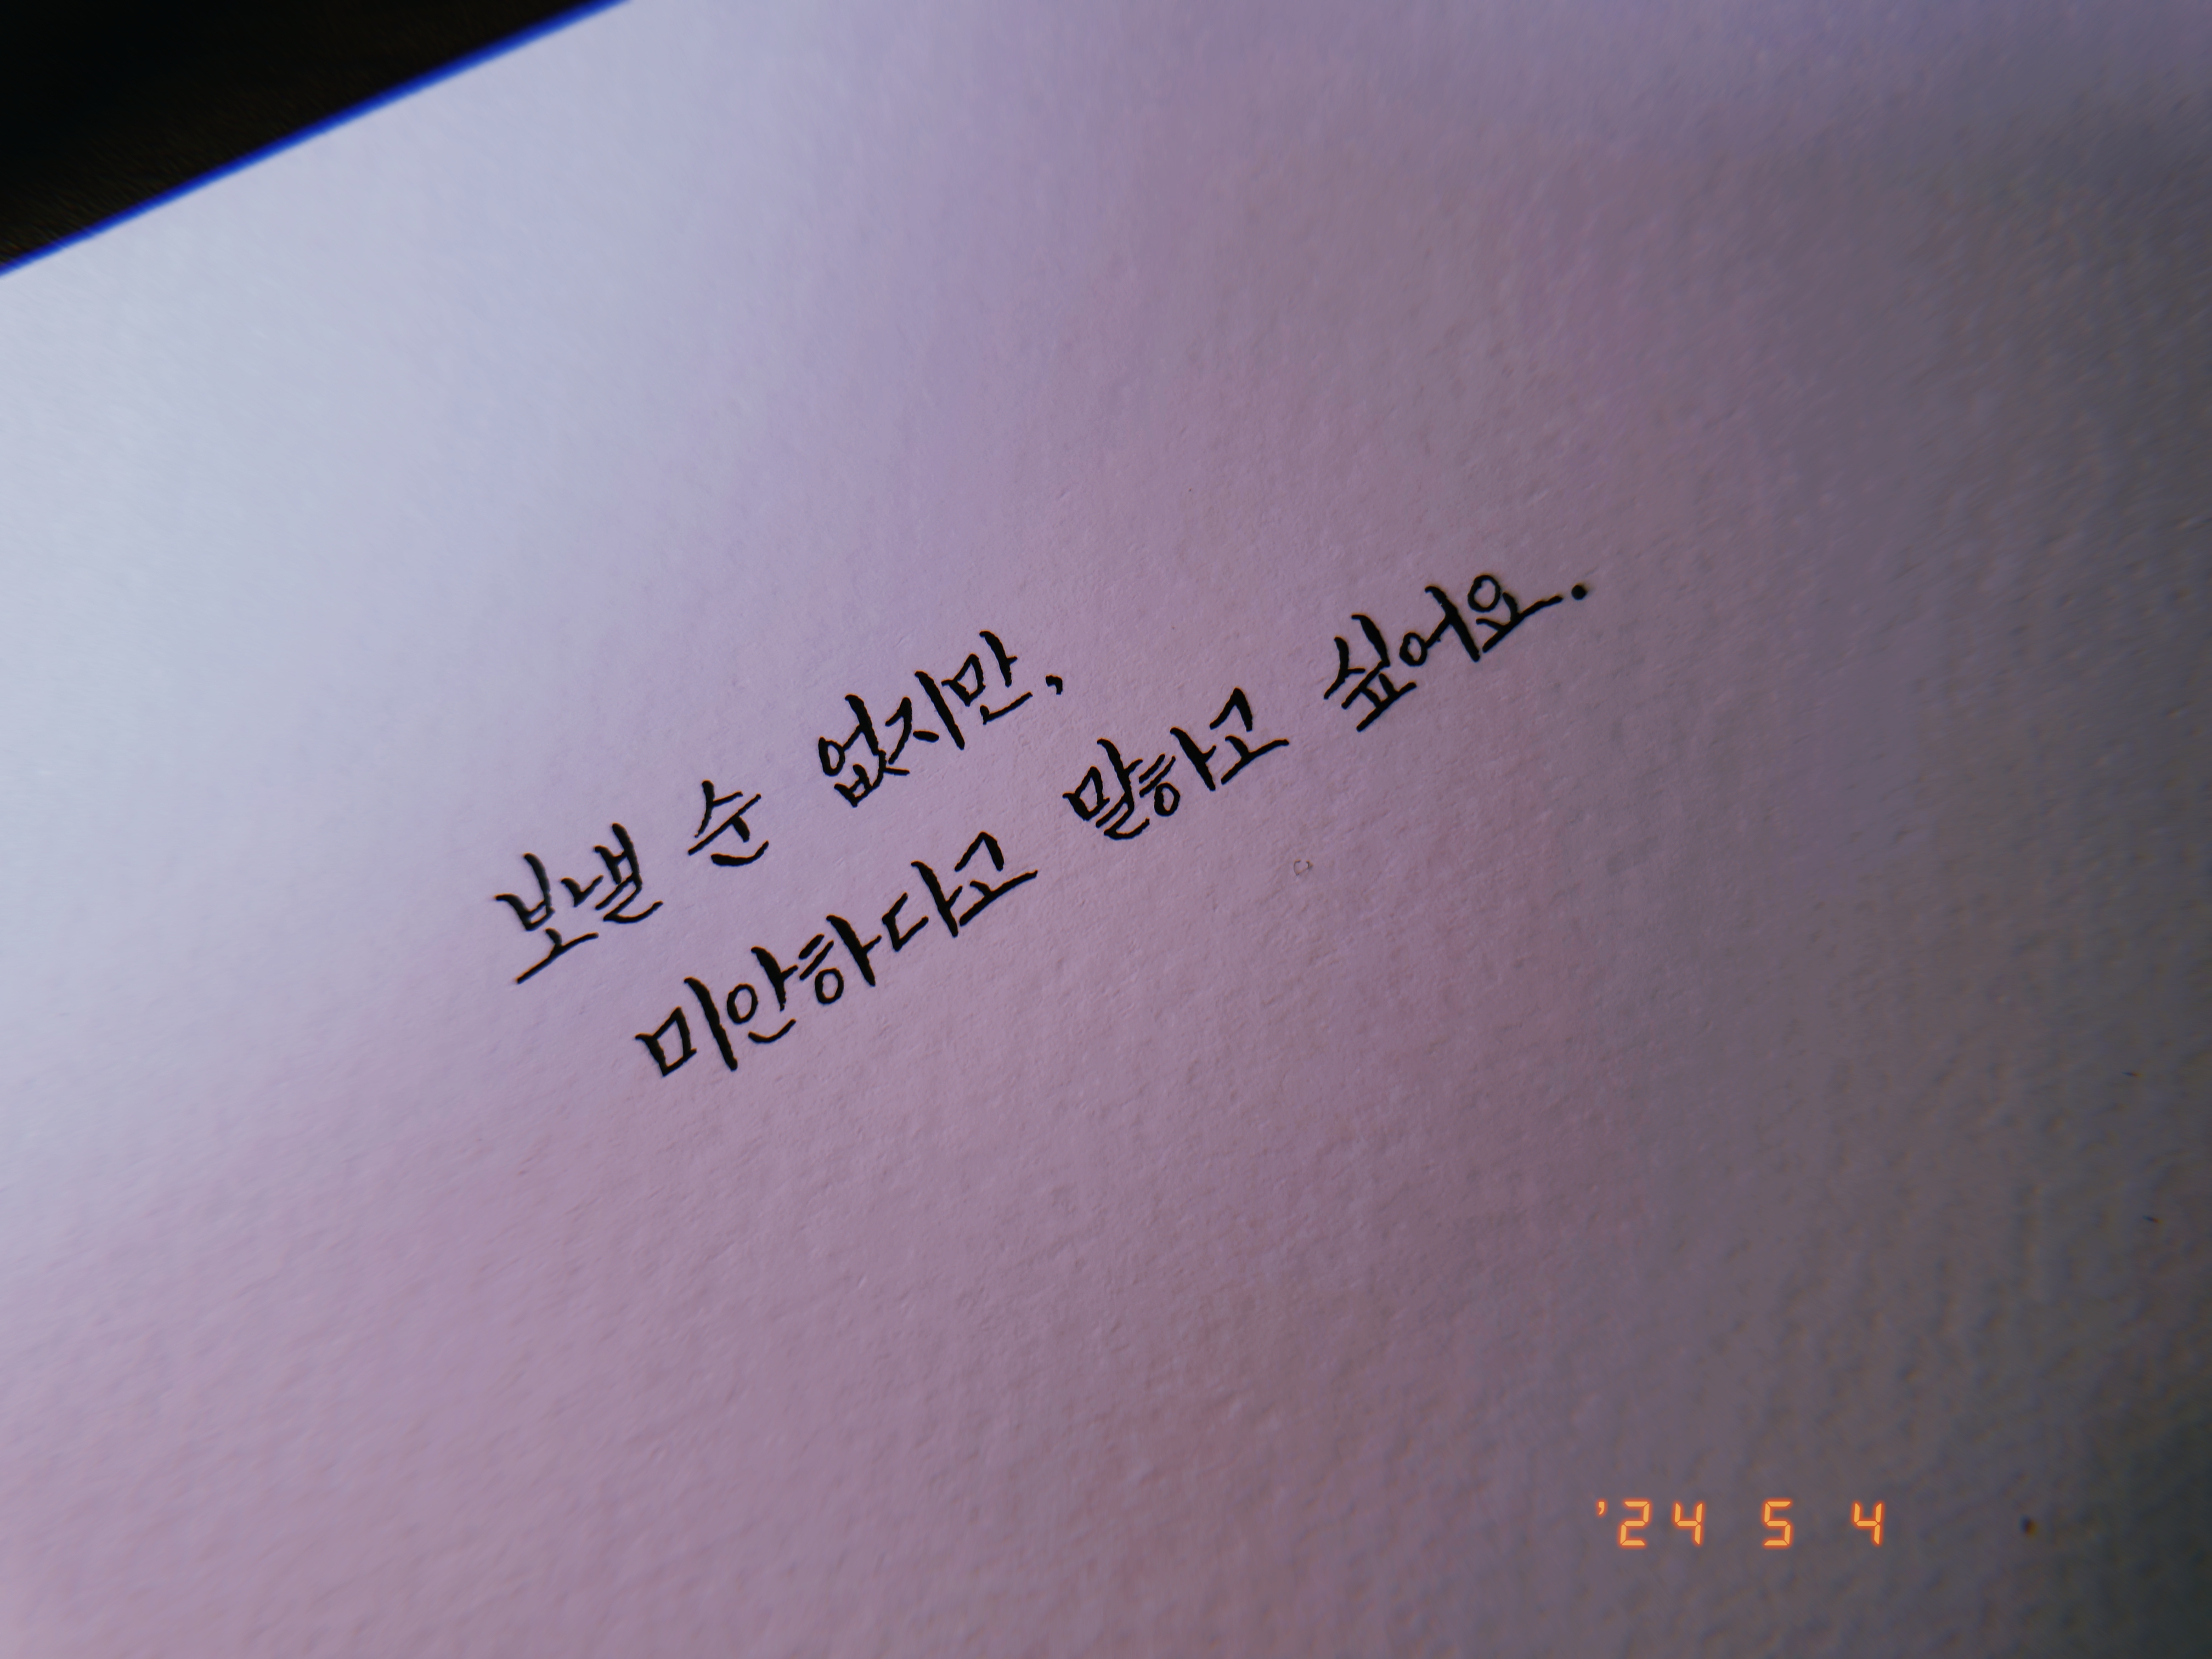 보낼 순 없지만,
미안하다고 말하고 싶어요.
'24 5 4